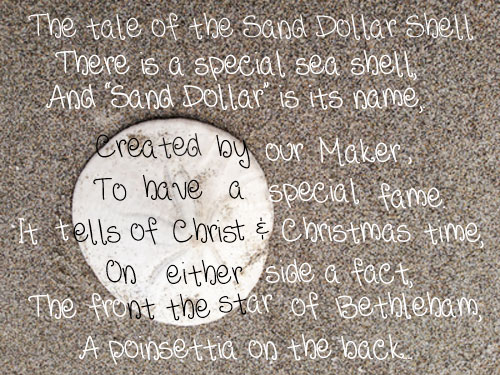 The tale of the Sand Dollar Shell
There is a special sea shell,
And "Sand Dollar" is its name,
Created by our Maker,
To have a special fame.
It tells of Christ & Christmas time,
On either side a fact,
The front the star of Bethleham,
A poinsettia on the back...